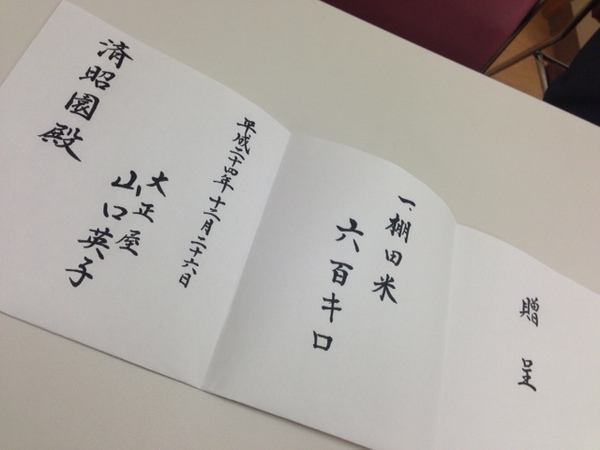 贈呈
一、棚田米
六百キロ
平成二十四年十二月二十六日
大正屋
山口英子
済昭園殿